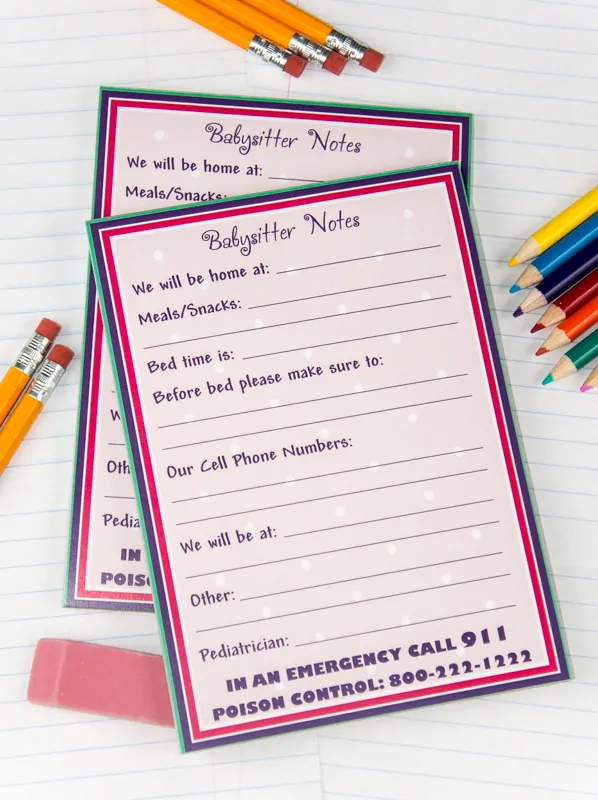 Babysitter Notes
We will be home at:
Meals/Snacks:
W
Oth
Pedia
IN
POIS
Babysitter Notes
We will be home at:
Meals/Snacks:
Bed time is:
Before bed please make sure to:
Our Cell Phone Numbers:
We will be at:
Other:
Pediatrician:
IN AN EMERGENCY CALL 911
POISON CONTROL: 800-222-1222